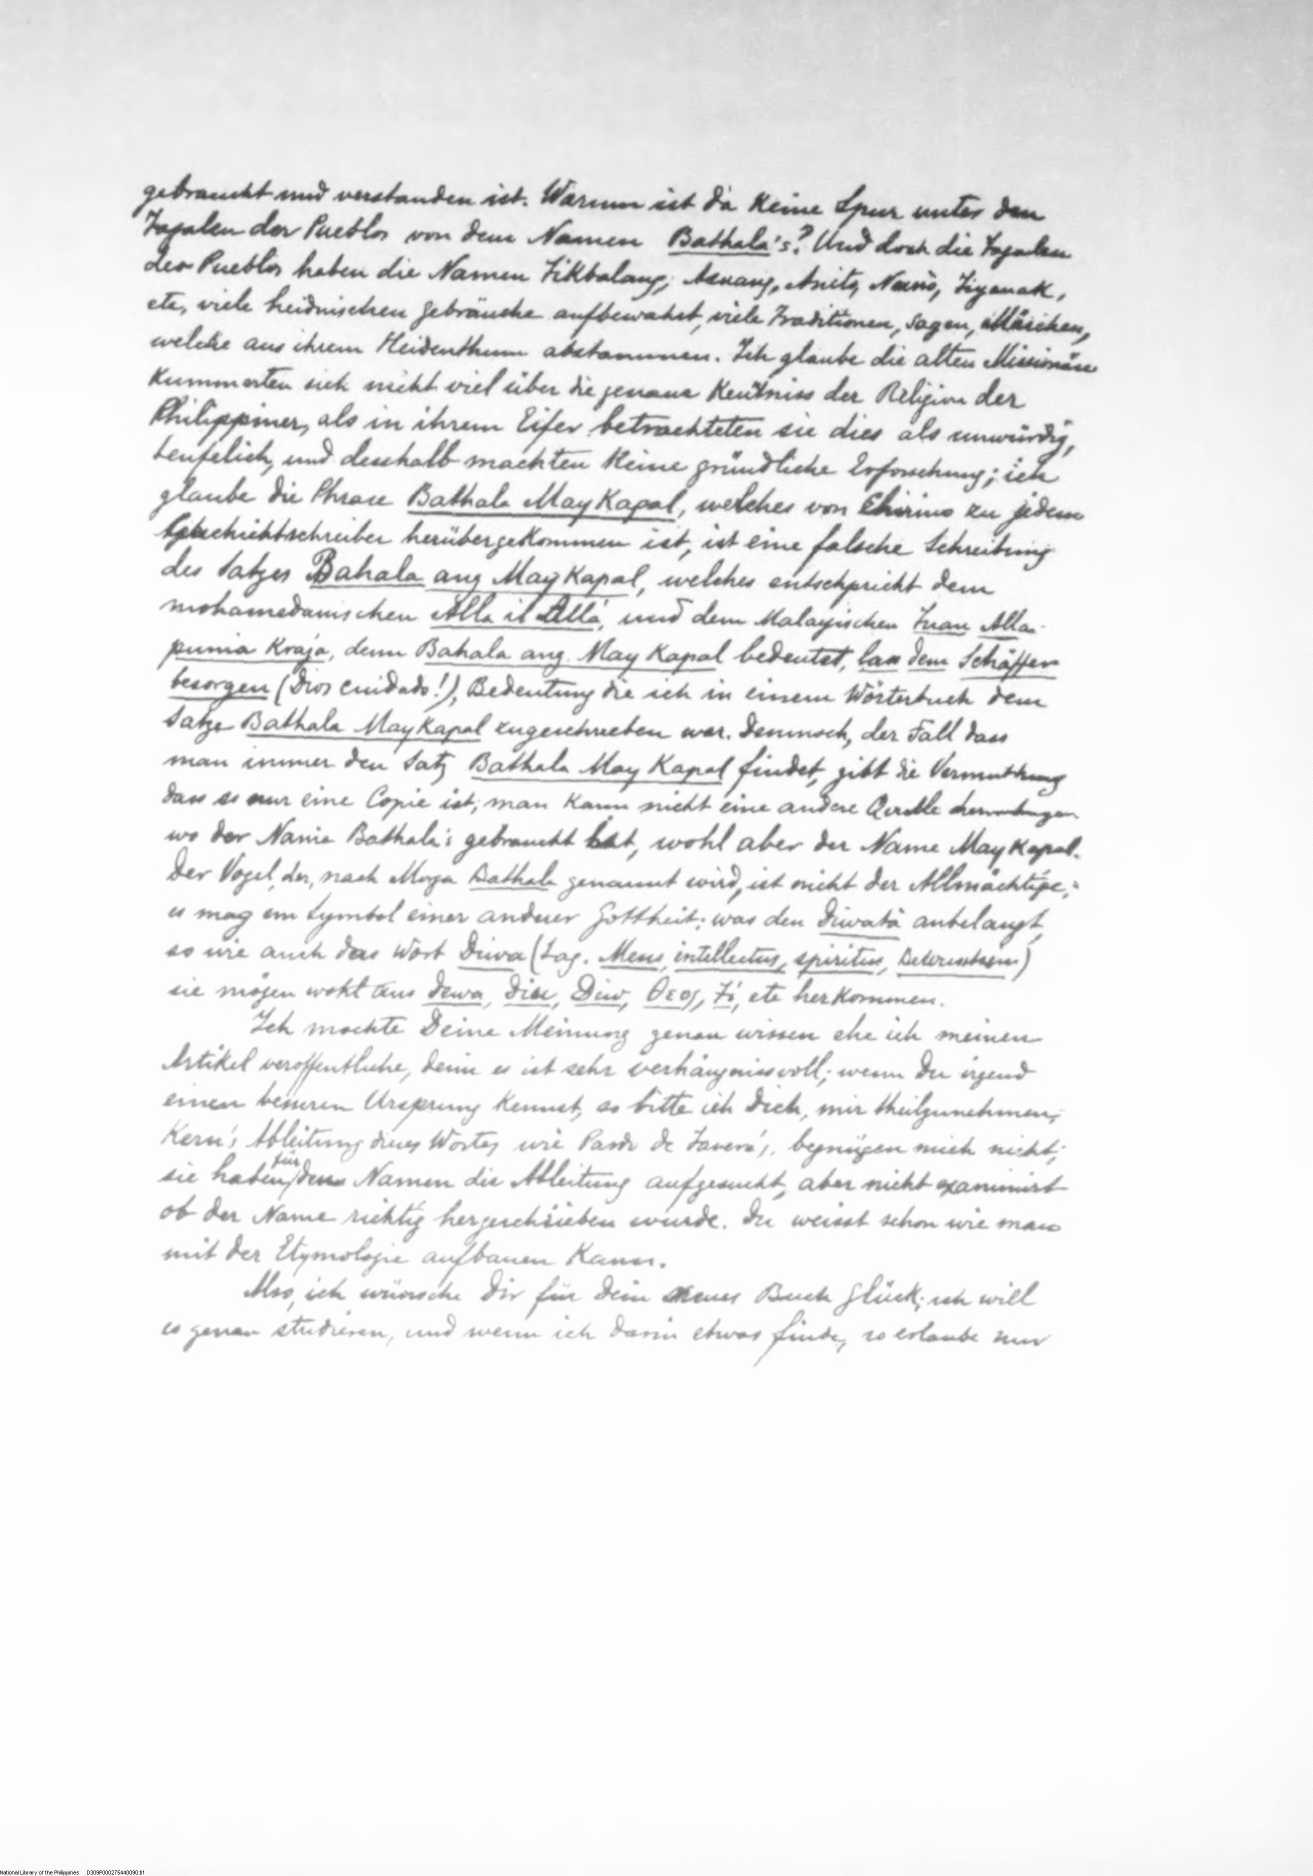 gebraucht und verstanden ist. Warum ist da keine Spur unter den
Tagalen der Pueblos von dem Namen Bathala's? Und doch die Tagalen
des Pueblos haben die Namen Tikbalang, Asuang, Anito, Nunò, Tiyanak,
etc, viele heidnischen Gebräuche aufbewahrt, viele Traditionen, Sagen, Märchen,
welche aus ihrem Heidenthum abstammen. Ich glaube die alten Missionäre
kummerten sich nicht viel über die genaue Kentniss der Religion der
Philippiner, als in ihrem Eifer betrachteten sie dies als unwürdig,
teufelich, und desshalb machten keine gründliche Erforschung; ich
glaube die Phrase Bathala May Kapal, welches von Chirino zu jedem
Geschichtschreiber herübergekommen ist, ist eine falsche Schreibung
des Satzes Bahala ang May Kapal, welches entschpricht dem
mohamedanischen Alla il Allá, und dem Malayischen Tuan Alla
punia kraja, denn Bahala ang May Kapal bedeutet, lass dem Schäffer
besorgen (Dios cuidado!), Bedeutung die ich in einem Wörterbuch dem
Satze Bathala May Kapal zugeschrieben war. Dennnoch, der Fall dass
man immer den Satz Bathala May Kapal findet, gibt die Vermuthung
dass es nur eine Copie ist; man kann nicht eine andere Quelle
wo der Name Bathala's gebraucht hat, wohl aber der Name May Kapal.
Der Vogel, der, nach Morga Bathala genannt wird, ist nicht der Allmächtige;
es mag ein Symbol einer anderer Gottheit; was den diwatà anbelangt,
so wie auch das Wort Diwa (Tag. Mens, intellectus, spiritus,)
sie mögen wohl aus dewa, dieu, Diw, Θεος, Ti, etc herkommen.
Ich mochte Deine Meinung genau wissen ehe ich meinen
Artikel veroffentliche, denn es ist sehr verhängnissvoll; wenn du irgend
einen besseren Ursprung kennst, so bitte ich Dich, mir theilzunehmen;
Kern's Ableitung dieses Wortes wie Pardo de Tavera's, begnügen mich nicht;
sie haben für den Namen die Ableitung aufgesucht, aber nicht examinirt
ob der Name richtig hergeschrieben wurde. Du weisst schon wie man
mit der Etymologie aufbauen kann.
Also, ich wünsche Dir für Dein neues Buch Glück; ich will
es genau studieren, und wenn ich darin etwas finde, so erlaube mir
National Library of the Philippines